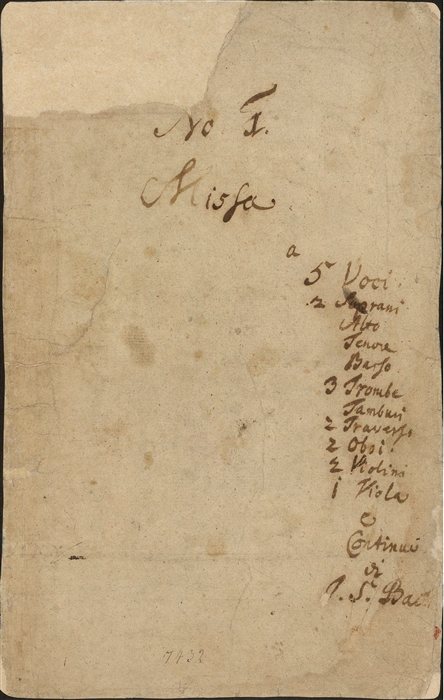 No I.
Missa
a
5 Voci.
2 Soprani
Alto
Tenore
Basso
3 Trombe
Tamburi
2 Traversi
2 Oboi.
2 Violini
1 Viola
e
Continui
di
J. S. Bac
7432